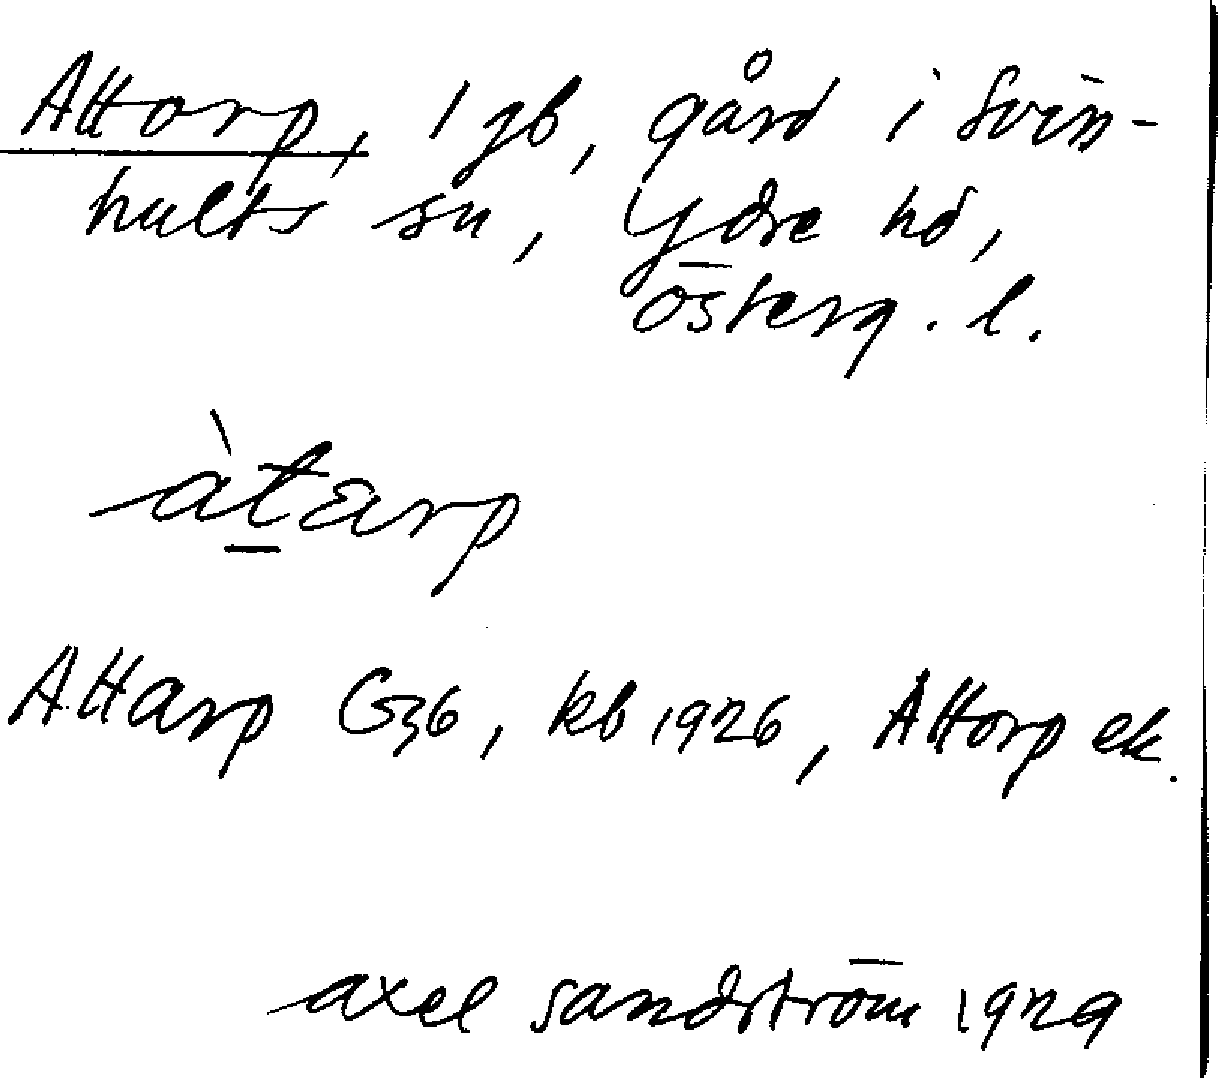 Attorp, 1 gb, gård i Svin-
hults sn, Ydre hd,
Österg. l.
àtarp
Attarp G36, kb 1926, Attorp ek.
axel sandström 1929